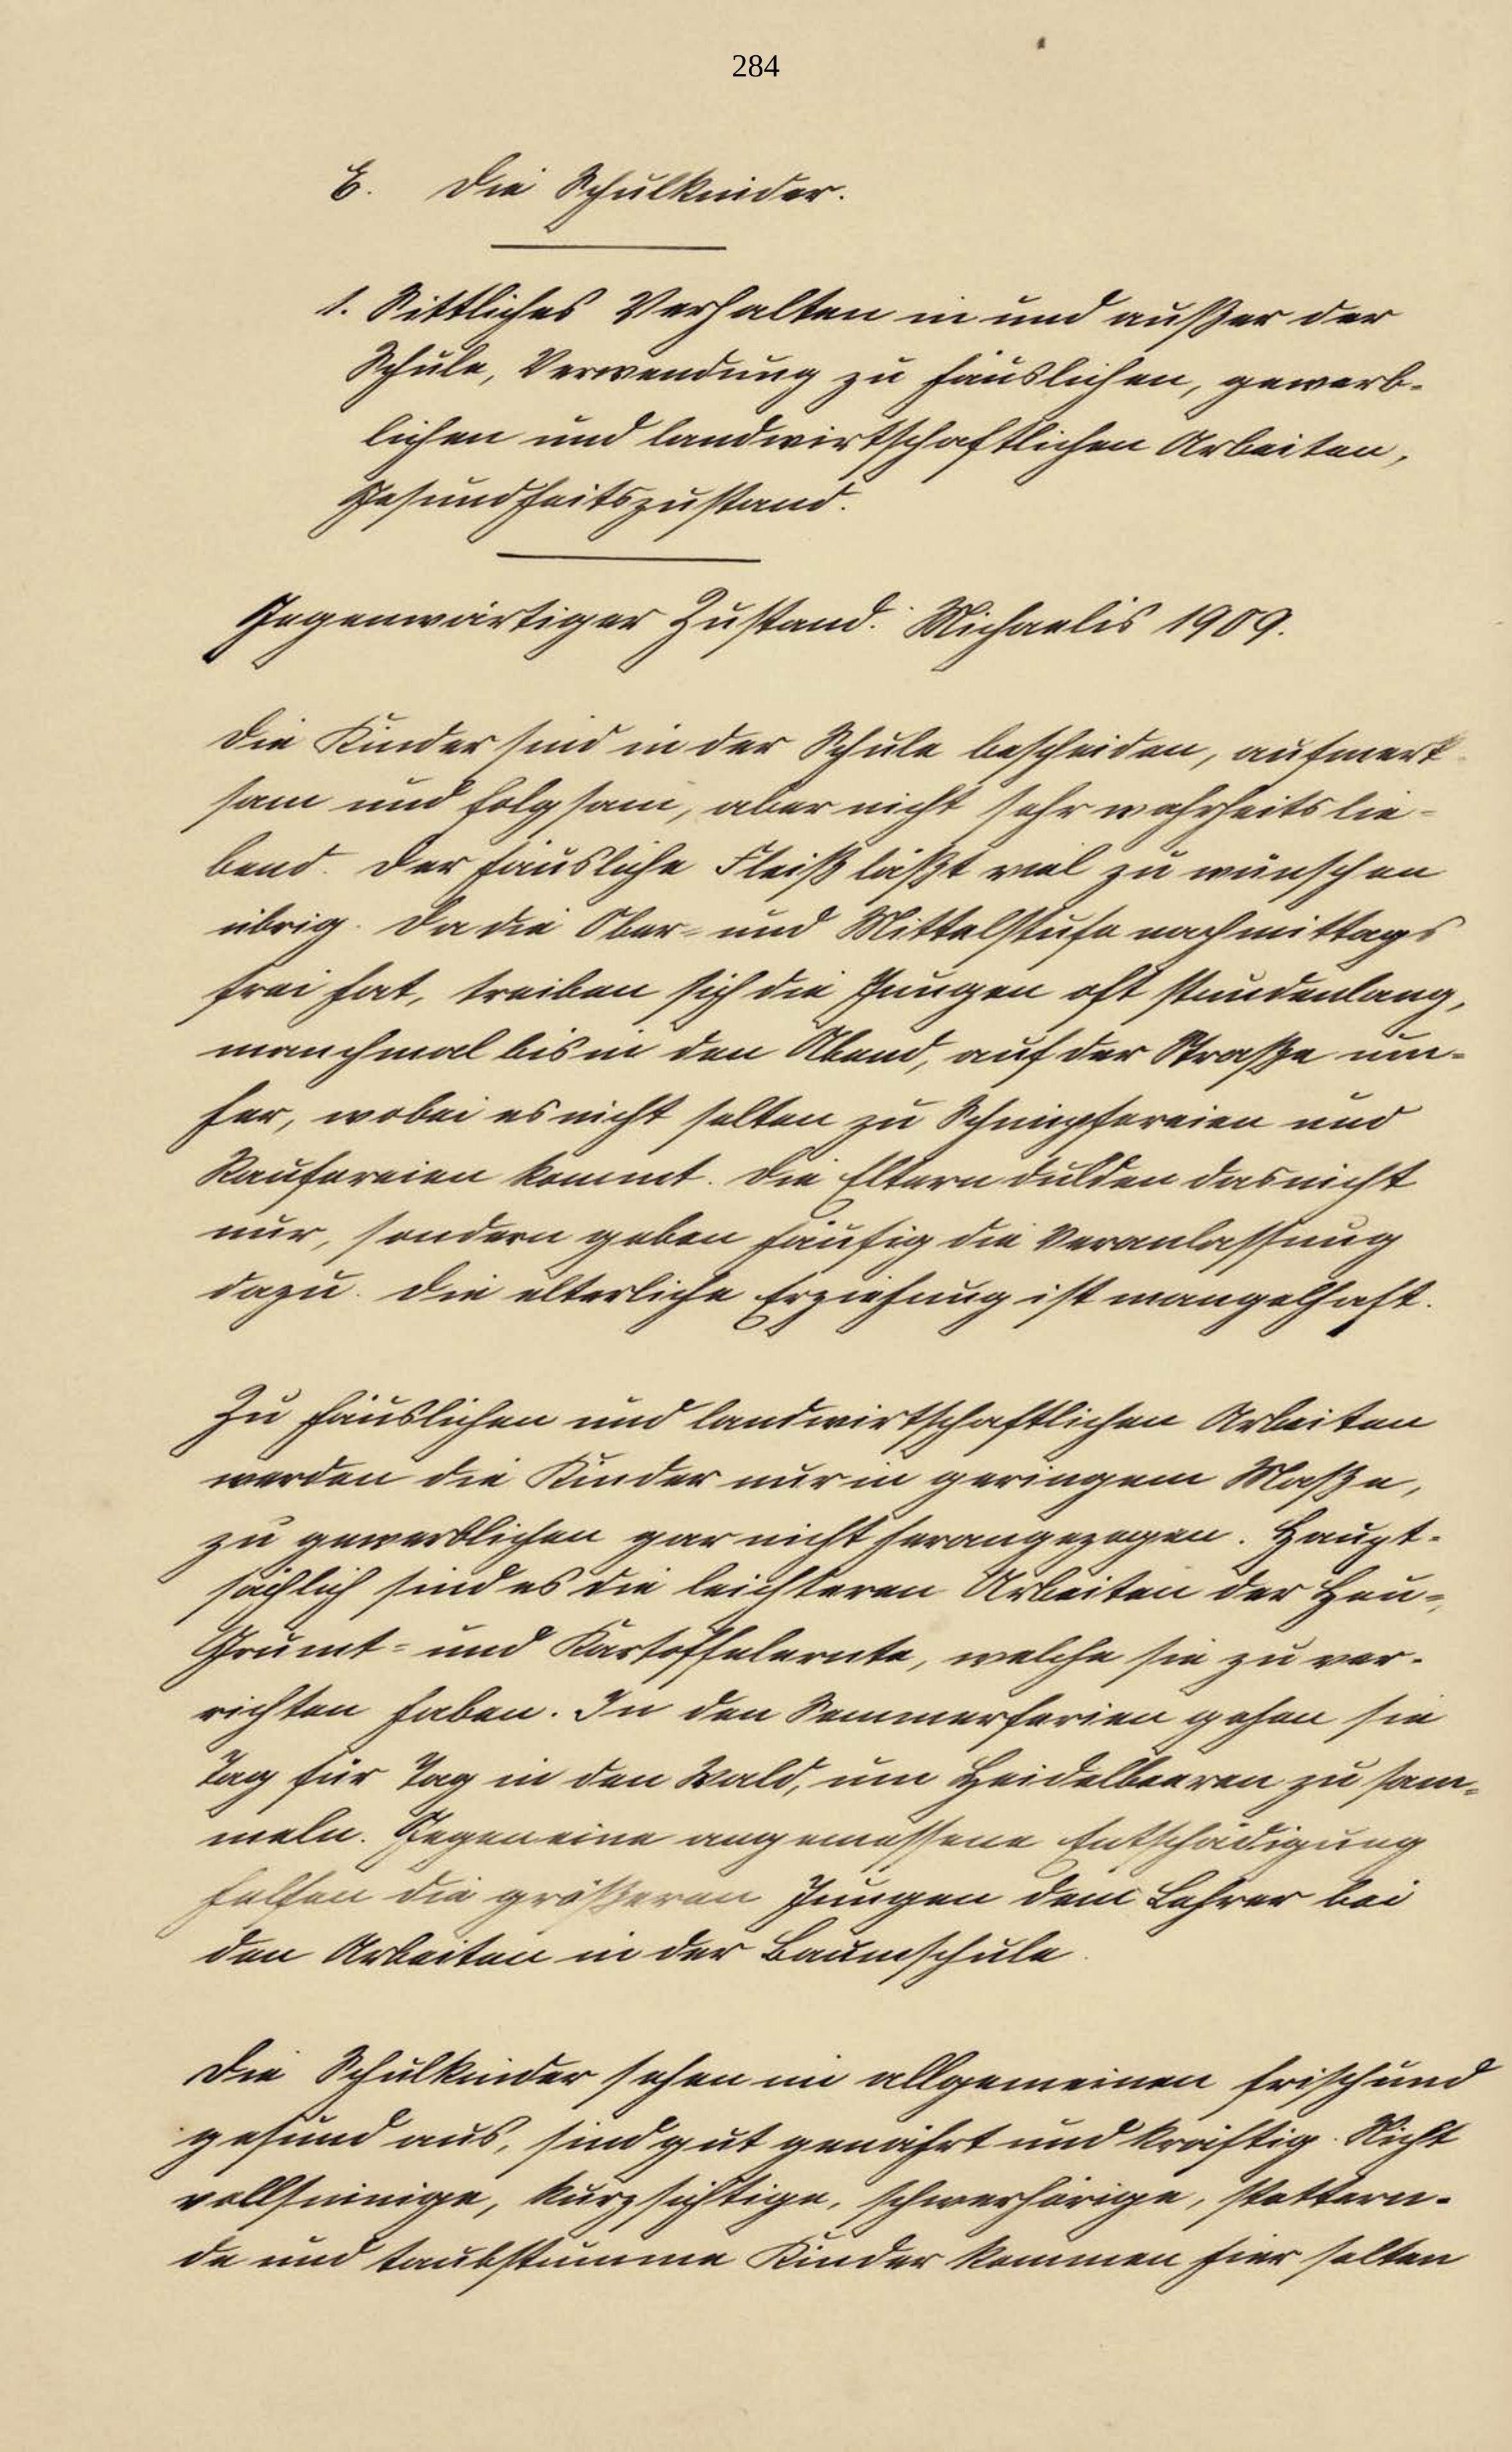 284
E. Die Schulkinder.
1. Sittliches Verhalten in und außer der
Schule, Verwendung zu häuslichen, gewerb-
lichen und landwirtschaftlichen Arbeiten,
Gesundheitszustand.
Gegenwärtiger Zustand. Michaelis 1909.
Die Kinder sind in der Schule bescheiden, aufmerk-
sam und folgsam, aber nicht sehr wahrheitslie-
bend. Der häusliche Fleiß läßt viel zu wünschen
übrig. Da die Ober- und Mittelstufe nachmittags
frei hat, treiben sich die Jungen oft stundenlang,
manchmal bis in den Abend, auf der Straße um-
her, wobei es nicht selten zu Schimpfereien und
Raufereien kommt. Die Eltern dulden das nicht
nur, sondern geben häufig die Veranlassung
dazu. Die elterliche Erziehung ist mangelhaft.
Zu häuslichen und landwirtschaftlichen Arbeiten
werden die Kinder nur in geringem Maße,
zu gewerblichen gar nicht herangezogen. Haupt-
sächlich sind es die leichteren Arbeiten der Heu-,
Grumt- und Kartoffelernte, welche sie zu ver-
richten haben. In den Sommerferien gehen sie
Tag für Tag in den Wald, um Heidelbeeren zu sam-
meln. Gegen eine angemessene Entschädigung
helfen die größeren Jungen dem Lehrer bei
den Arbeiten in der Baumschule.
Die Schulkinder sehen im allgemeinen frisch und
gesund aus, sind gut genährt und kräftig. Nicht
vollsinnige, kurzsichtige, schwerhörige, stottern-
de und taubstumme Kinder kommen hier selten